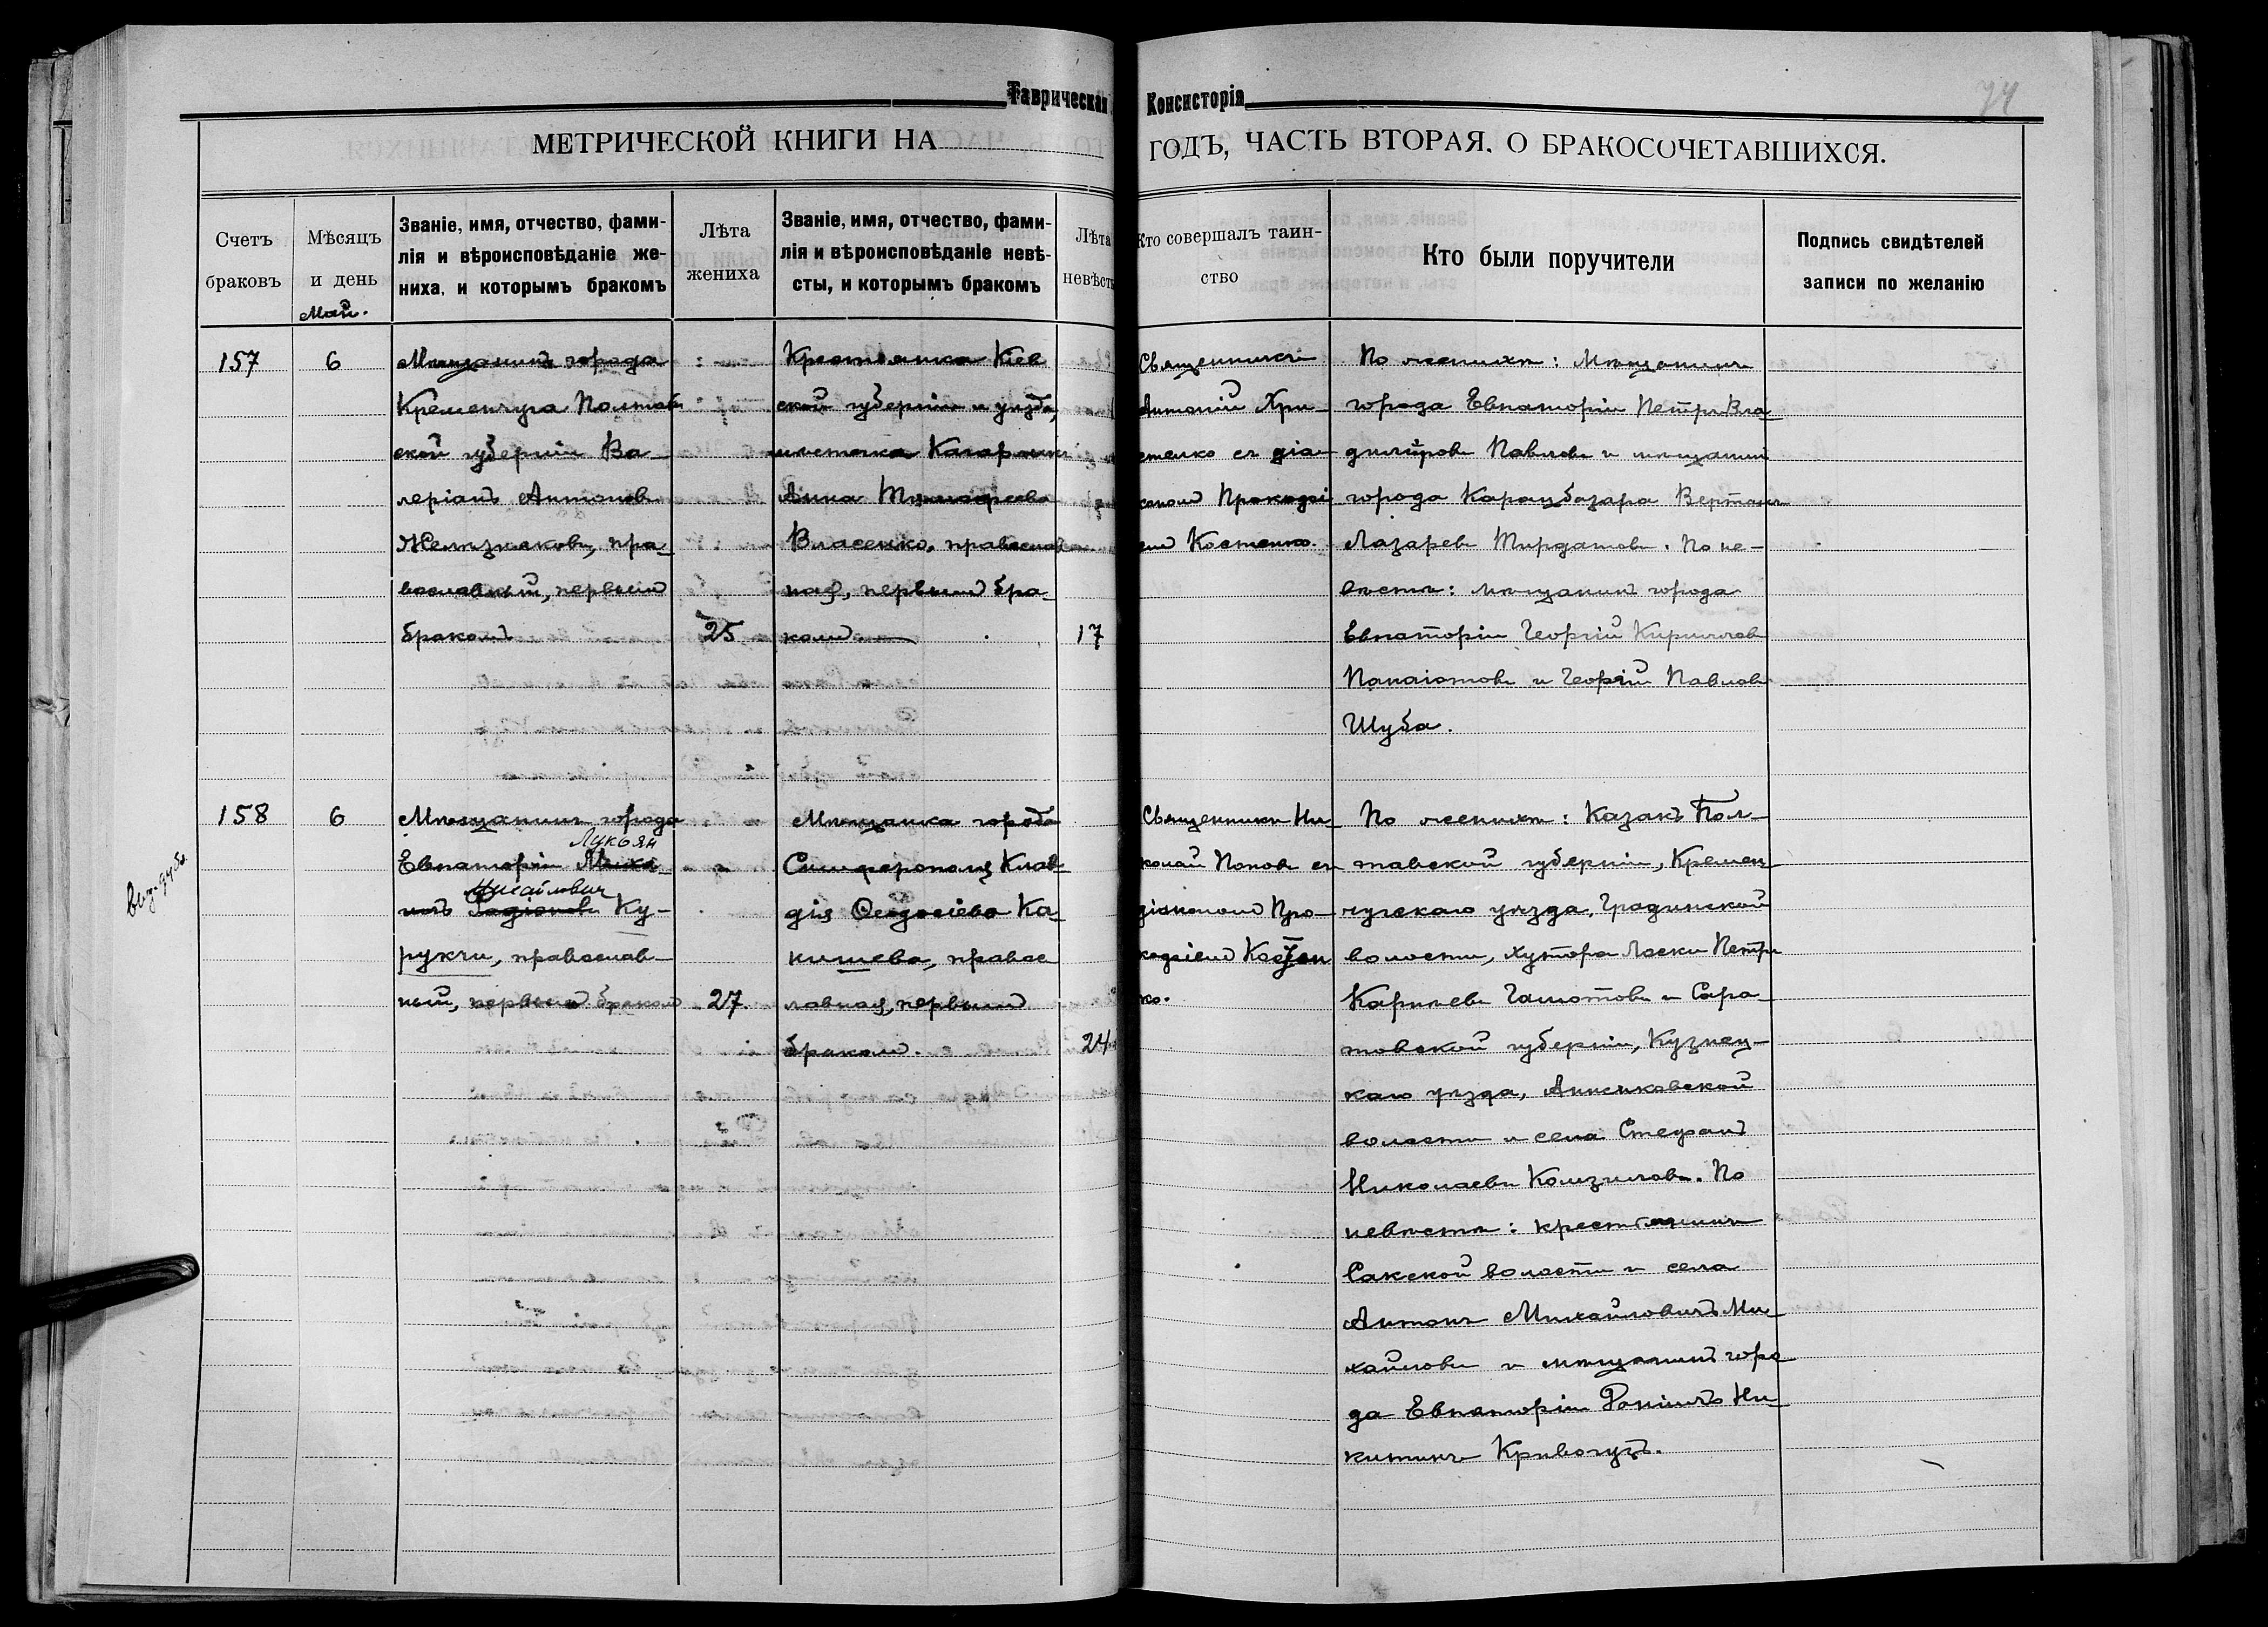 Таврическая Консисторія
74
МЕТРИЧЕСКОЙ КНИГИ НА ГОДЪ, ЧАСТЬ ВТОРАЯ, О БРАКОСОЧЕТАВШИХСЯ.
Счетъ
браковъ
Мѣсяцъ
и день
Май.
Званіе, имя, отчество, фами-
лія и вѣроисповѣданіе же-
ниха, и которымъ бракомъ
Лѣта
жениха
Званіе, имя, отчество, фами-
лія и вѣроисповѣданіе невѣ-
сты, и которымъ бракомъ
Лѣта
невѣсты
Кто совершалъ таин-
ство
Кто были поручители
Подпись свидѣтелей
записи по желанію
157
6
Мѣщанинъ города
Кременчуга Полтав
ской губерніи Ва-
леріанъ Антоновъ
Желѣзняковъ, пра-
вославный, первымъ
бракомъ
25
Крестьянка Кіев
ской губерніи и уѣзда,
мѣстечка Кагарлика
Анна Тимофеева
Власенко, православ
ная, первымъ бра-
комъ
17
Священникъ
Антоній Хри-
стенко съ діа-
кономъ Прокофі
емъ Костенко.
По женихѣ: мѣщанинъ
города Евпаторіи Петръ Вла
диміровъ Павловъ и мѣщанинъ
города Карацбазара Вертанъ
Лазаревъ Тирдатовъ. По не-
вѣстѣ: мѣщанинъ города
Евпаторіи Георгій Кирилловъ
Панаіотовъ и Георгій Павловъ
Шуба.
158
6
Мѣщанинъ города
Лукьян
Евпаторіи Миха
Михайловичъ
илъ Родіоновъ Ку-
рукчи, православ-
ный, первымъ бракомъ
27
Мѣщанка города
Симферополя Клав-
дія Ѳеодосіева Ка-
кишева, правос
лавная, первымъ
бракомъ.
24
Священникъ Ни-
колай Поповъ съ
діакономъ Про-
кофіемъ Костен
ко.
По женихѣ: Казакъ Пол-
тавской губерніи, Кремен-
чугскаго уѣзда, Градижской
волости, хутора Ляски Петръ
Карпѣевъ Гамотовъ и Сара-
товской губерніи, Кузнец-
каго уѣзда, Анненковской
волости и села Стефанъ
Николаевъ Комзиловъ. По
невѣстѣ: крестьянинъ
Сакской волости и села
Антонъ Михайловичъ Ми-
хайловъ и мѣщанинъ горо
да Евпаторіи Ни-
китинъ